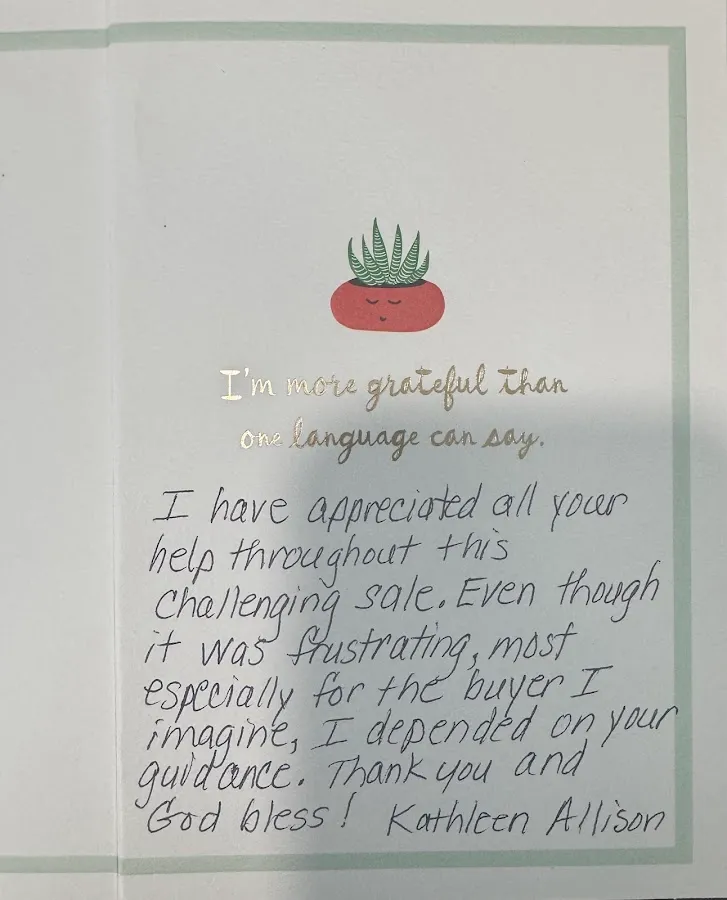 I'm more grateful than
one language can say.
I have appreciated all your
help throughout this
challenging sale. Even though
it was frustrating, most
especially for the buyer I
imagine, I depended on your
guidance. Thank you and
God bless! Kathleen Allison